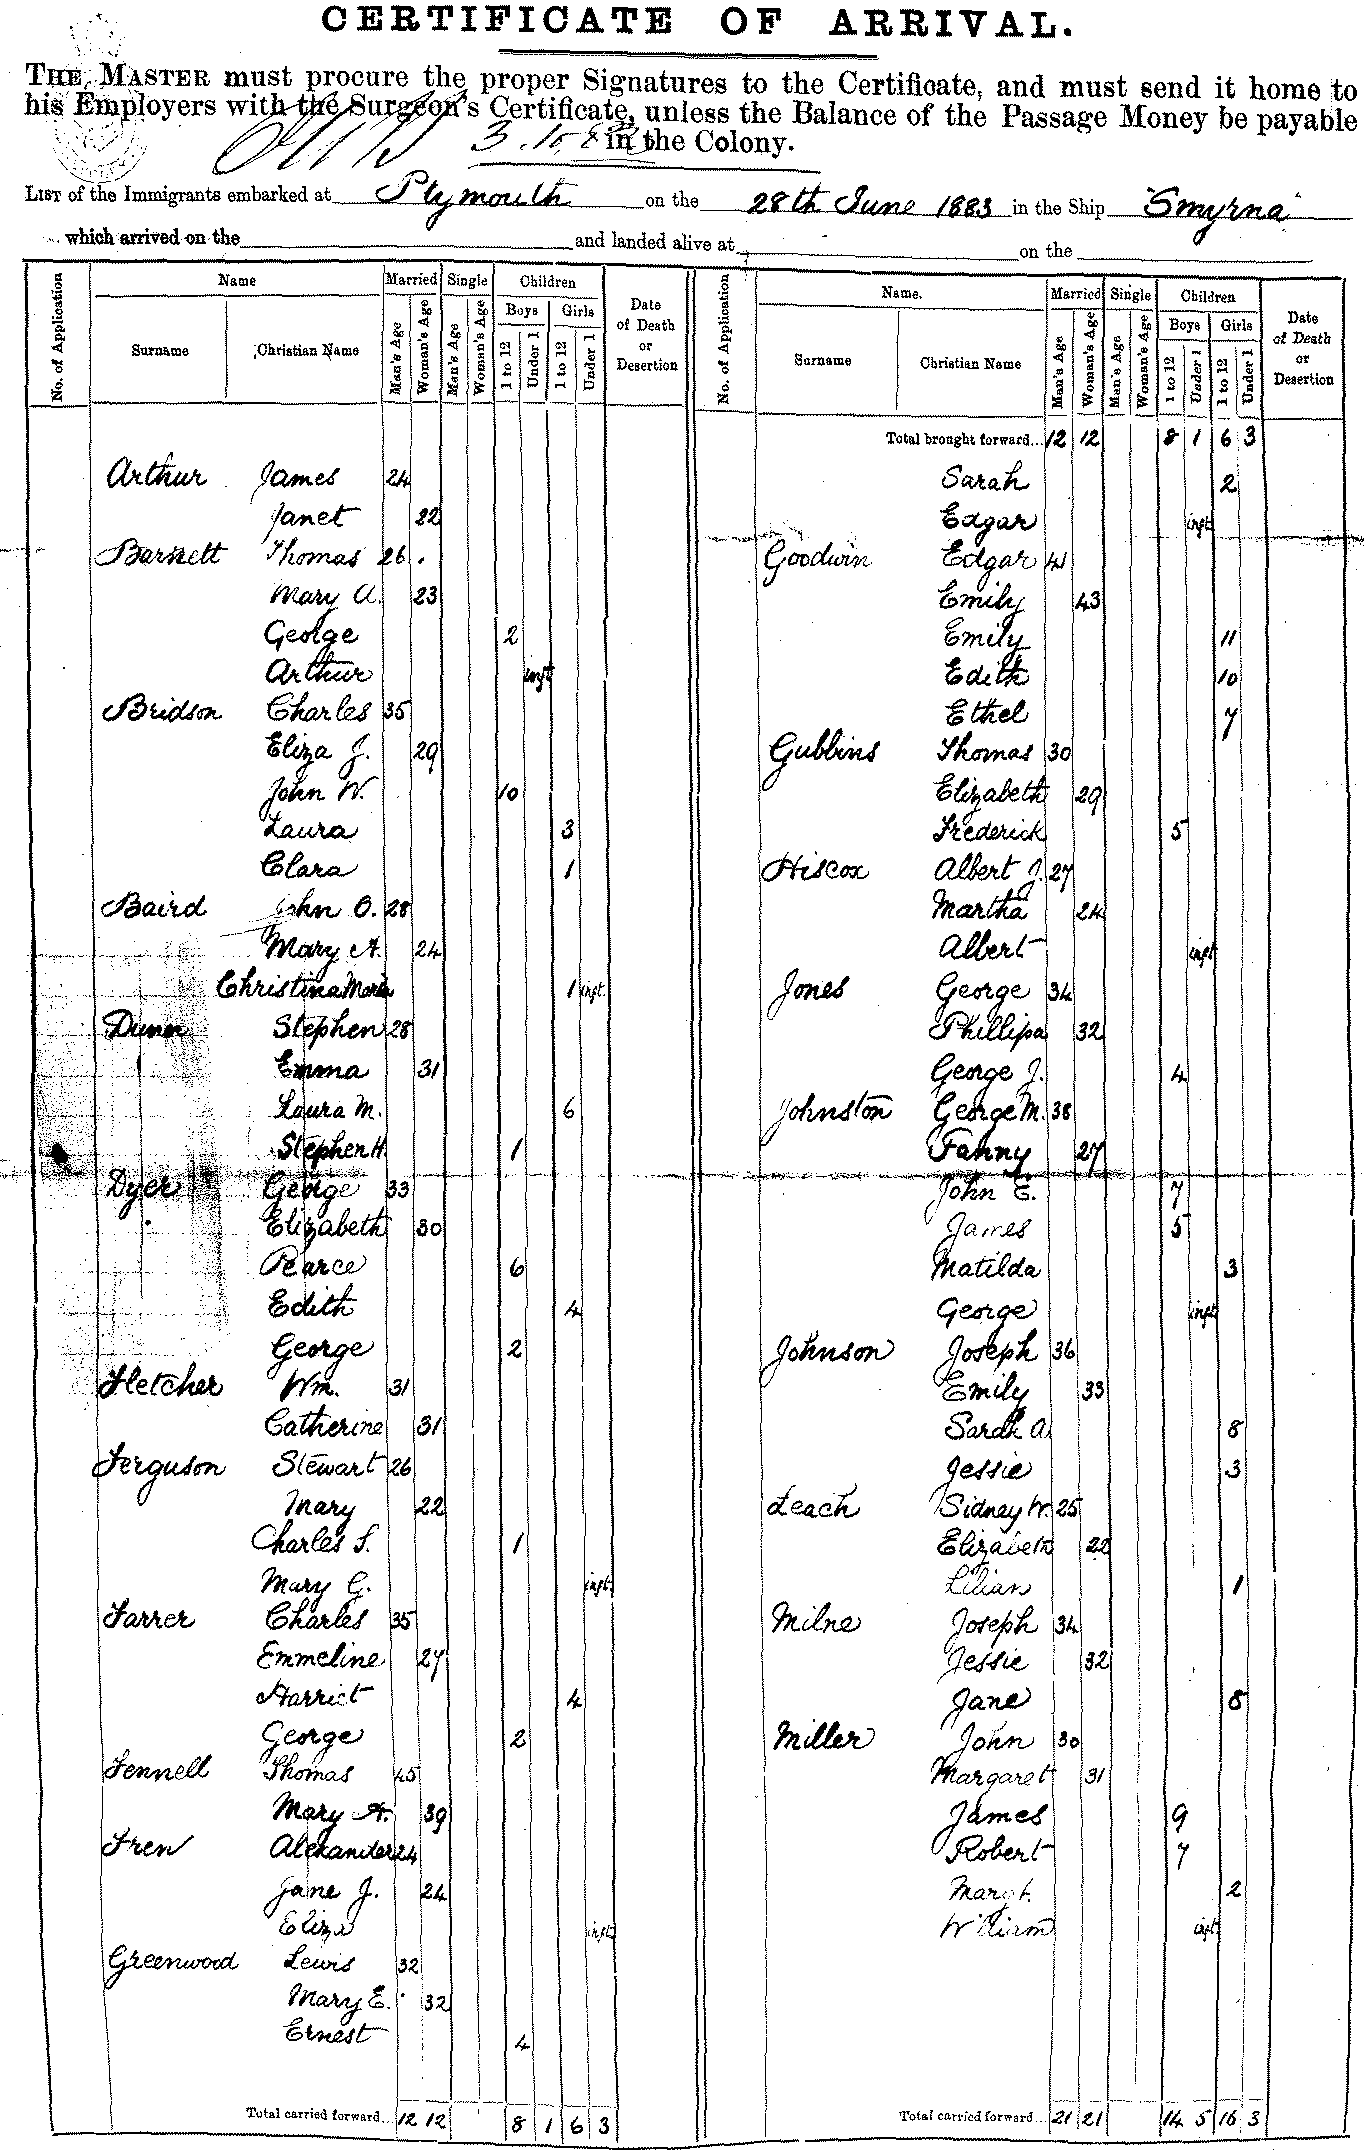 CERTIFICATE OF ARRIVAL.
THE MASTER must procure the proper Signatures to the Certificate, and must send it home to
his Employers with the Surgeon's Certificate, unless the Balance of the Passage Money be payable
in the Colony.
3.10.83
LIST of the Immigrants embarked at Plymouth on the 28th June 1883 in the Ship Smyrna
which arrived on the and landed alive at on the
No. of Application Name Married Single Children Date of Death or Desertion
Surname Christian Name Man's Age Woman's Age Man's Age Woman's Age Boys Girls
1 to 12 Under 1 1 to 12 Under 1
Arthur James 24
Janet 22
Barnett Thomas 26
Mary A. 23
George 2
Arthur inft
Bridson Charles 35
Eliza J. 29
John W. 10
Laura 3
Clara 1
Baird John O. 28
Mary A. 24
Christina Maria 1 inft.
Dunn Stephen 28
Emma 31
Laura M. 6
Stephen H. 1
Dyer George 33
Elizabeth 30
Pearce 6
Edith 4
George 2
Fletcher Wm. 31
Catherine 31
Ferguson Stewart 26
Mary 22
Charles S. 1
Mary G. inft.
Farrer Charles 35
Emmeline 27
Harriet 4
George 2
Fennell Thomas 45
Mary A. 39
Fren Alexander 24
Jane J. 24
Eliza inft.
Greenwood Lewis 32
Mary E. 32
Ernest 4
Total carried forward... 12 12 8 1 6 3
No. of Application Name. Married Single Children Date of Death or Desertion
Surname Christian Name Man's Age Woman's Age Man's Age Woman's Age Boys Girls
1 to 12 Under 1 1 to 12 Under 1
Total brought forward... 12 12 8 1 6 3
Sarah 2
Edgar inft
Goodwin Edgar 41
Emily 43
Emily 11
Edith 10
Ethel 7
Gubbins Thomas 30
Elizabeth 29
Frederick 5
Hiscox Albert J. 27
Martha 24
Albert inft
Jones George 34
Phillipa 32
George J. 4
Johnston George M. 38
Fanny 27
John E. 7
James 5
Matilda 3
George inft
Johnson Joseph 36
Emily 33
Sarah A. 8
Jessie 3
Leach Sidney W. 25
Elizabeth 22
Lilian 1
Milne Joseph 34
Jessie 32
Jane 8
Miller John 30
Margaret 31
James 9
Robert 7
Margt. 2
William inft
Total carried forward... 21 21 14 5 16 3